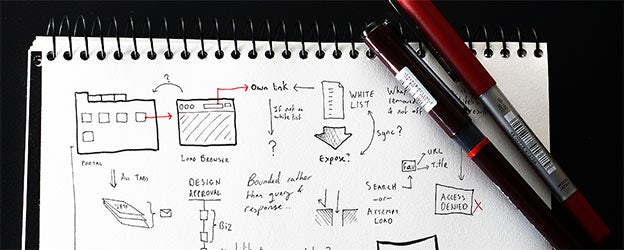 ?
Own link
WHITE
LIST
If not on
white list
?
sync?
Expose?
PORTAL
LOAD BROWSER
URL
Title
Fav
ALL TABS
DESIGN
APPROVAL
BIZ
Bounded rather
than query &
response...
SEARCH
-or-
ATTEMPT
LOAD
ACCESS
DENIED
X